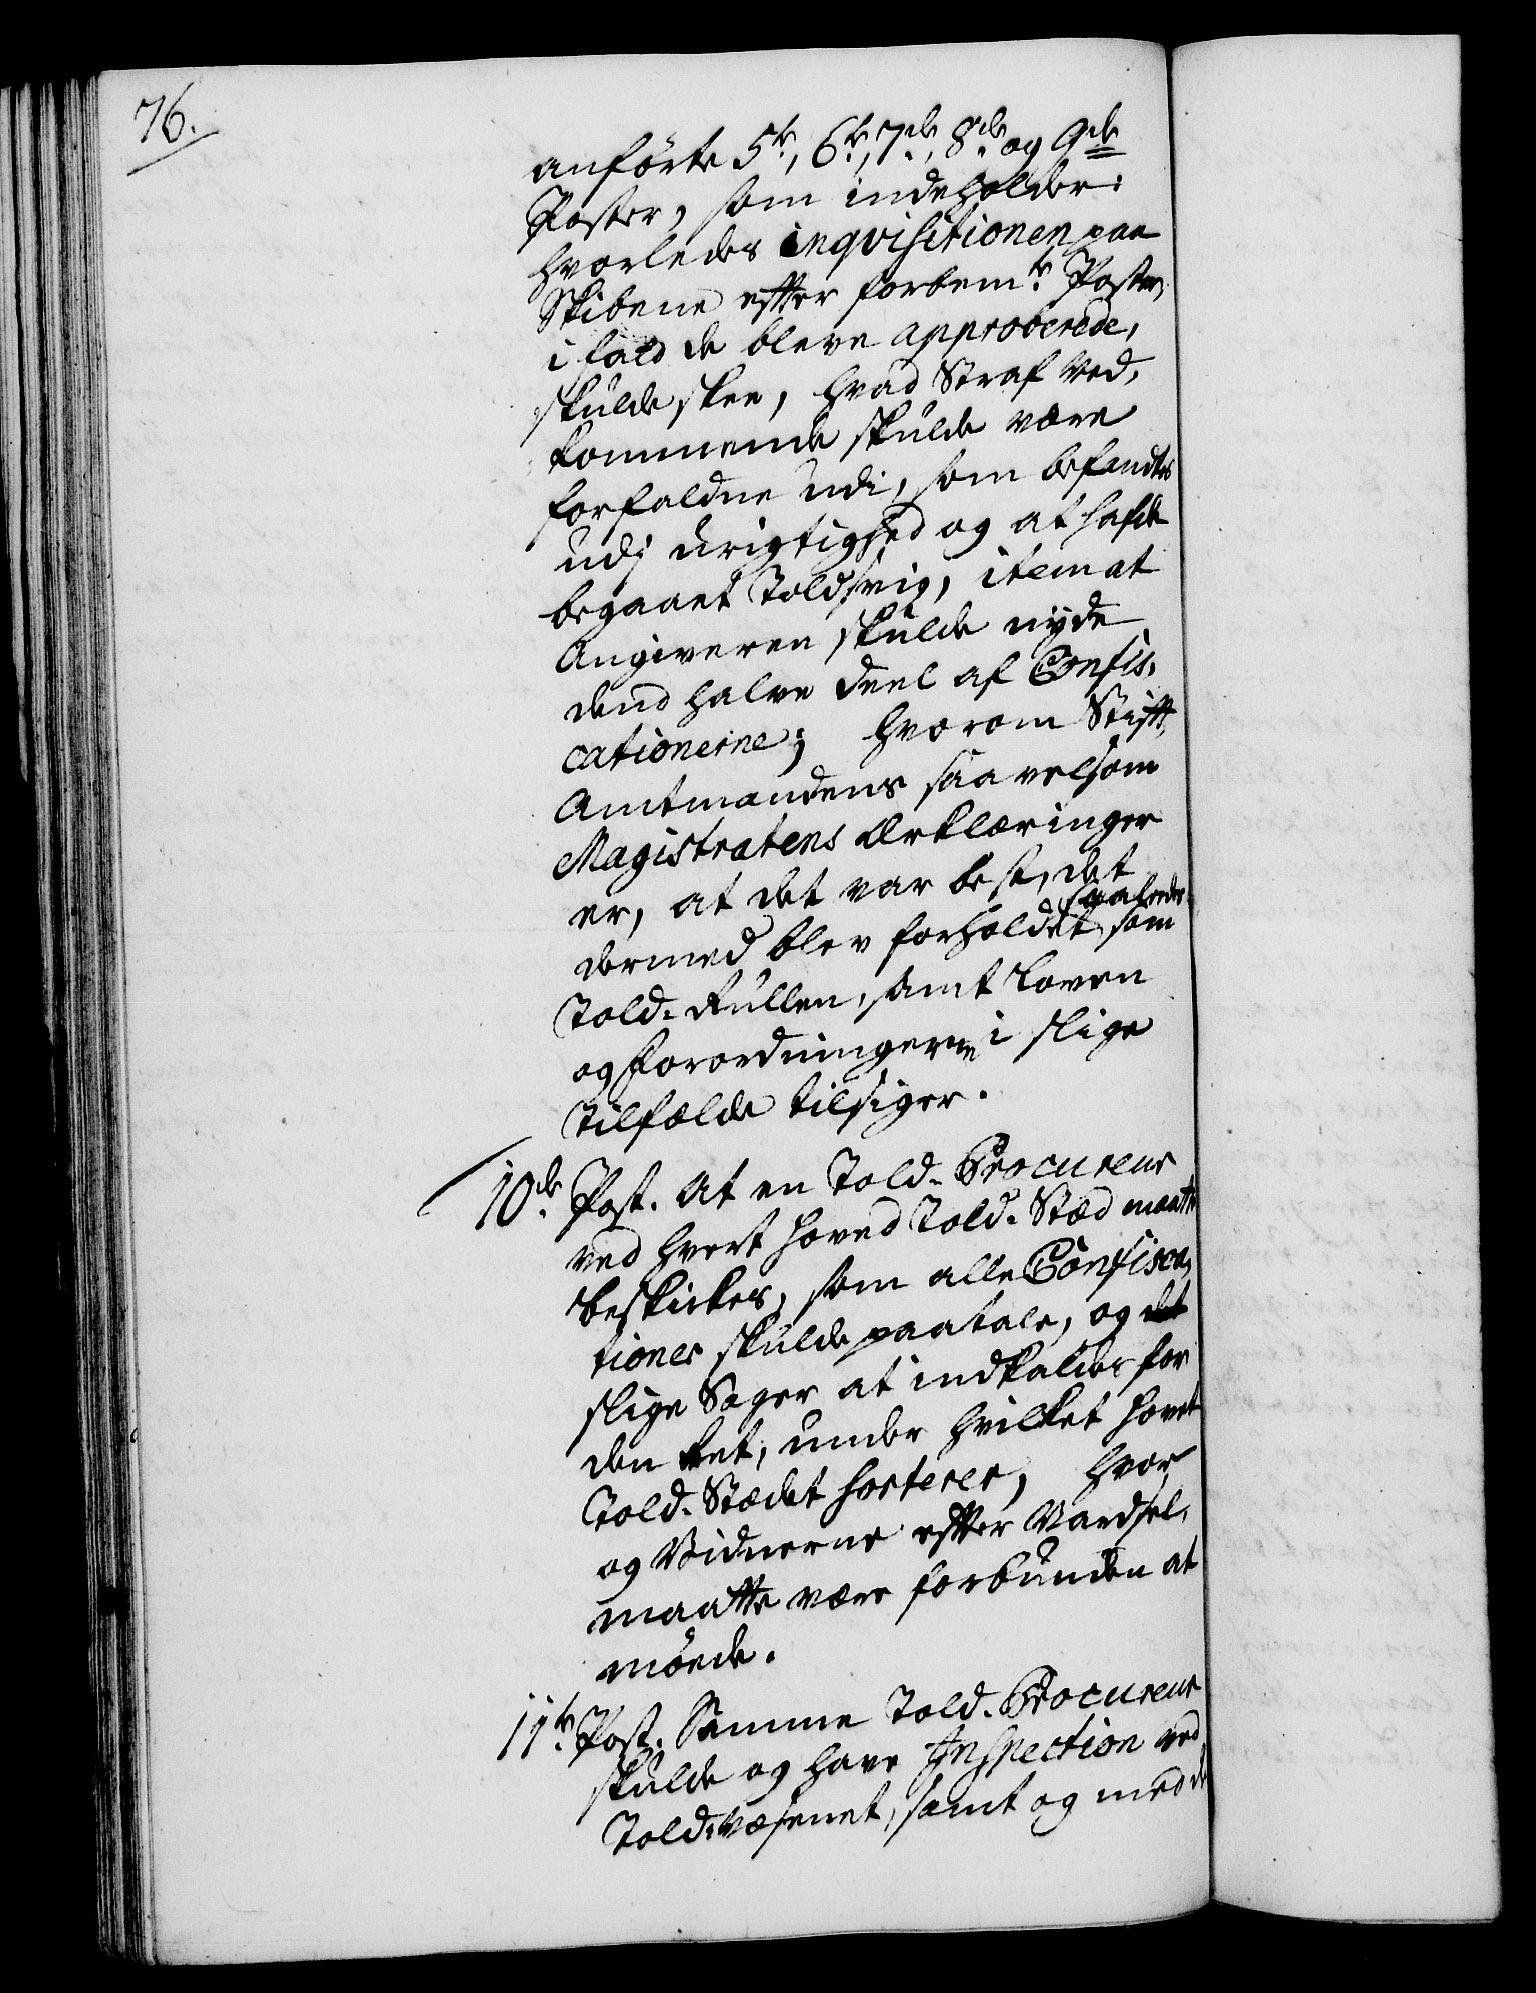 76.
anførte 5te, 6te, 7de, 8de og 9de
Poster, som indeholder:
hvorledes inqvisitionen paa
Skibene efter forbemte Poster,
i fald de bleve approberede,
skulde skee, hvad Straf Ved,
kommende skulde være
forfaldne udi, som befandtes
udj urigtighed og at hafde
begaaet Toldsvig, item at
Angiveren skulde nyde
dend halve Deel af Confis,
cationerne; hvorom Stift,
Amtmandens saavelsom
Magistratens Erklæringer
er, at det var best, det
dermed blev forholdet saaledes som
Told-Rullen, samt Loven
og Forordningerne i slige
Tilfælde tilsiger.
10de Post. At en Told-Procureur
ved hvert Hoved Told-Stæd maatte
beskickes, som alle Confisca,
tioner skulde paatale, og det
slige Sager at indkaldes for
den Ret, under hvilket Hovet
Told-Stædet sorterer, hvor
og Vidnerne efter Vardsel,
maatte være forbunden at
møede.
11te Post. Samme Told-Procureur
skulde og have Inspection ved
Told-Væsenet, samt og med de